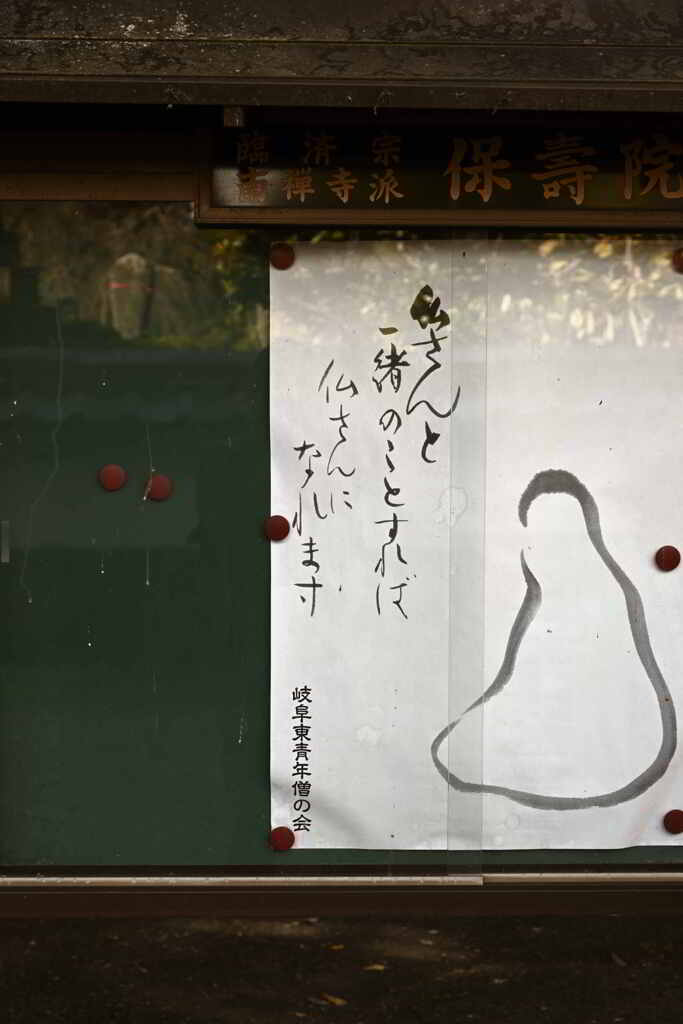 臨済宗
南禅寺派
保壽院
仏さんと
一緒のことすれば
仏さんに
なれます
岐阜東青年僧の会